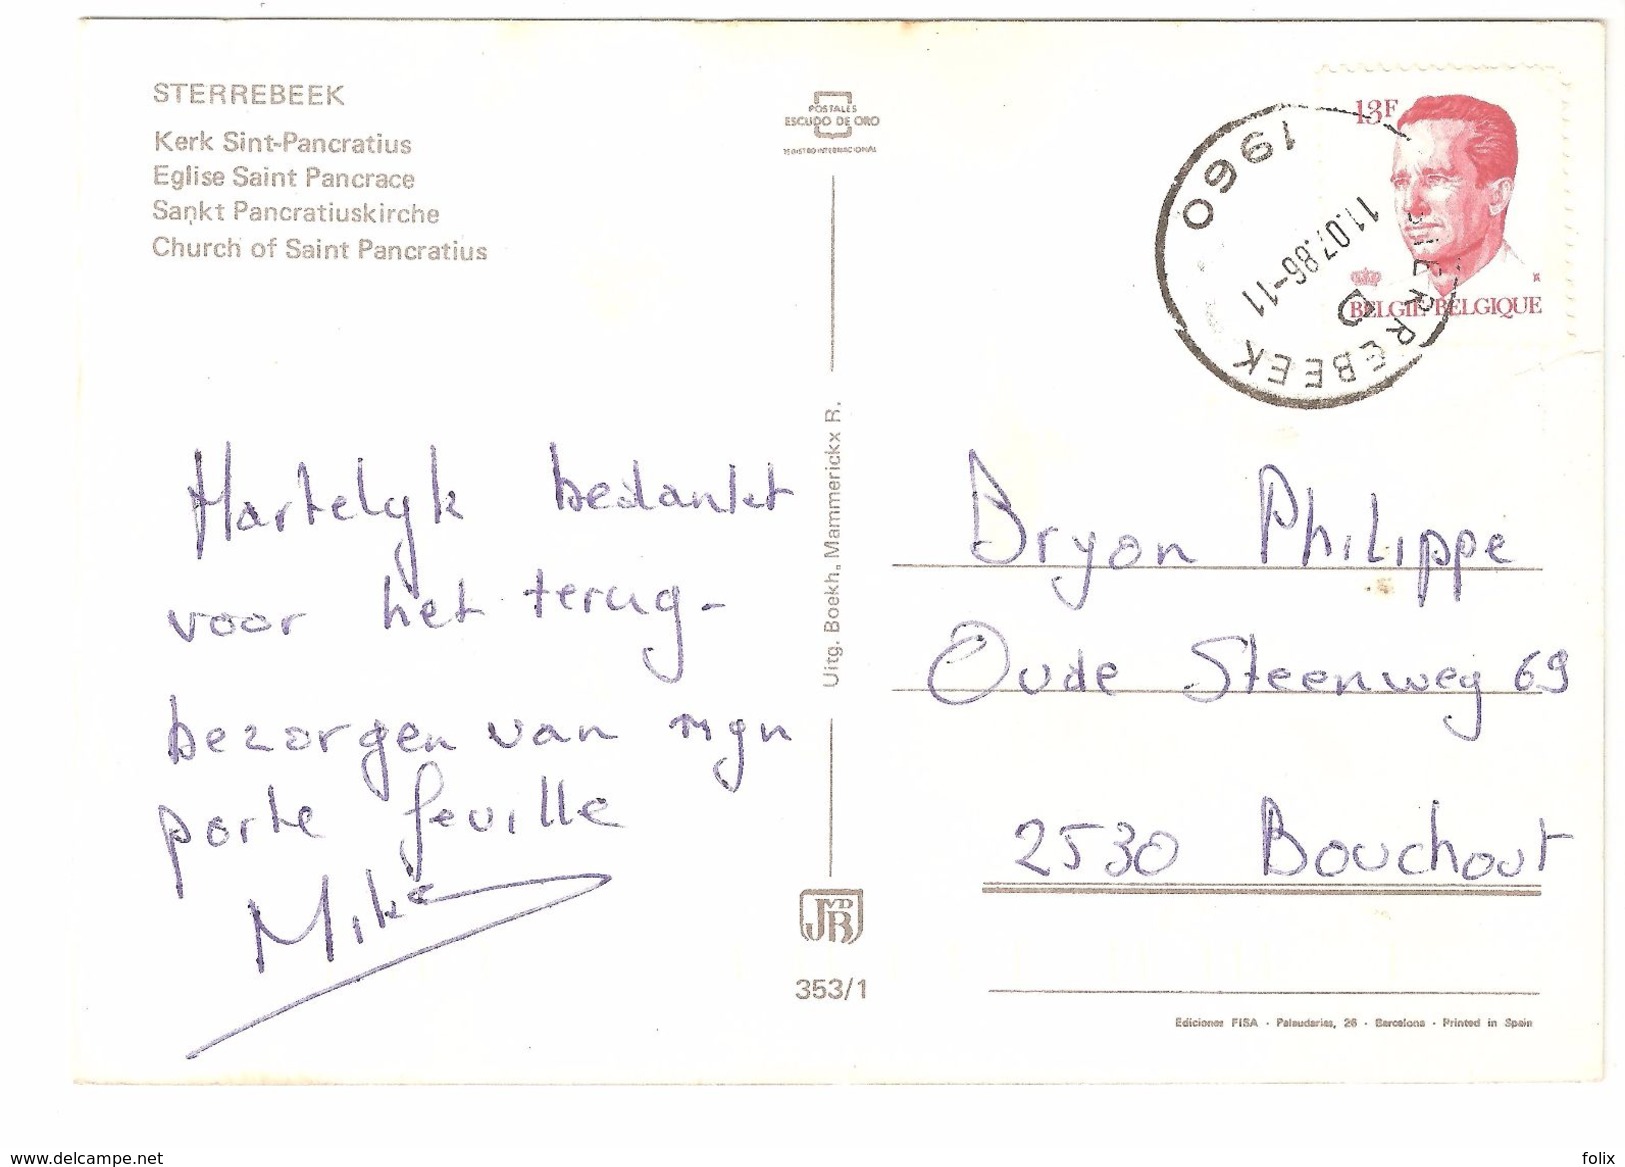 STERREBEEK
Kerk Sint-Pancratius
Eglise Saint Pancrace
Sankt Pancratiuskirche
Church of Saint Pancratius
POSTALES
ESCUDO DE ORO
REGISTRO INTERNACIONAL
13F
BELGIE-BELGIQUE
1960
11.07.86-11
D
STERREBEEK
Hartelyk bedankt
voor het terug-
bezorgen van myn
porte feuille
Mike
Uitg. Boekh. Mammerickx R.
Bryon Philippe
Oude Steenweg 69
2530 Bouchout
JVDB
353/1
Ediciones FISA - Palaudarias, 26 - Barcelona - Printed in Spain
www.delcampe.net
folix